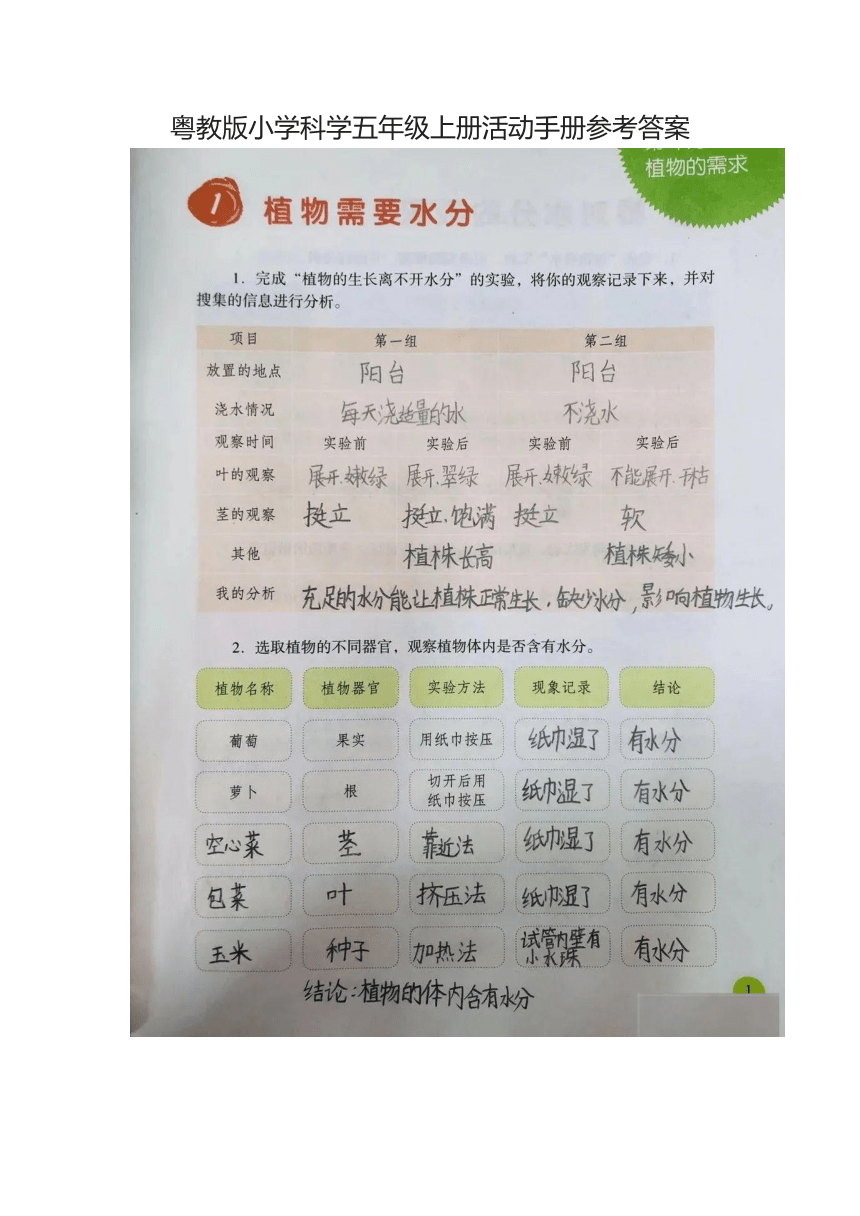 粤教版小学科学五年级上册活动手册参考答案
植物的需求
1 植物需要水分
1. 完成“植物的生长离不开水分”的实验，将你的观察记录下来，并对
搜集的信息进行分析。
项目 第一组 第二组
放置的地点 阳台 阳台
浇水情况 每天浇适量的水 不浇水
观察时间 实验前 实验后 实验前 实验后
叶的观察 展开、嫩绿 展开、翠绿 展开、嫩绿 不能展开、干枯
茎的观察 挺立 挺立、饱满 挺立 软
其他 植株长高 植株矮小
我的分析 充足的水分能让植株正常生长，缺少水分，影响植物生长。
2. 选取植物的不同器官，观察植物体内是否含有水分。
植物名称 植物器官 实验方法 现象记录 结论
葡萄 果实 用纸巾按压 纸巾湿了 有水分
萝卜 根 切开后用
纸巾按压 纸巾湿了 有水分
空心菜 茎 靠近法 纸巾湿了 有水分
包菜 叶 挤压法 纸巾湿了 有水分
玉米 种子 加热法 试管内壁有
小水珠 有水分
结论：植物的体内含有水分
1